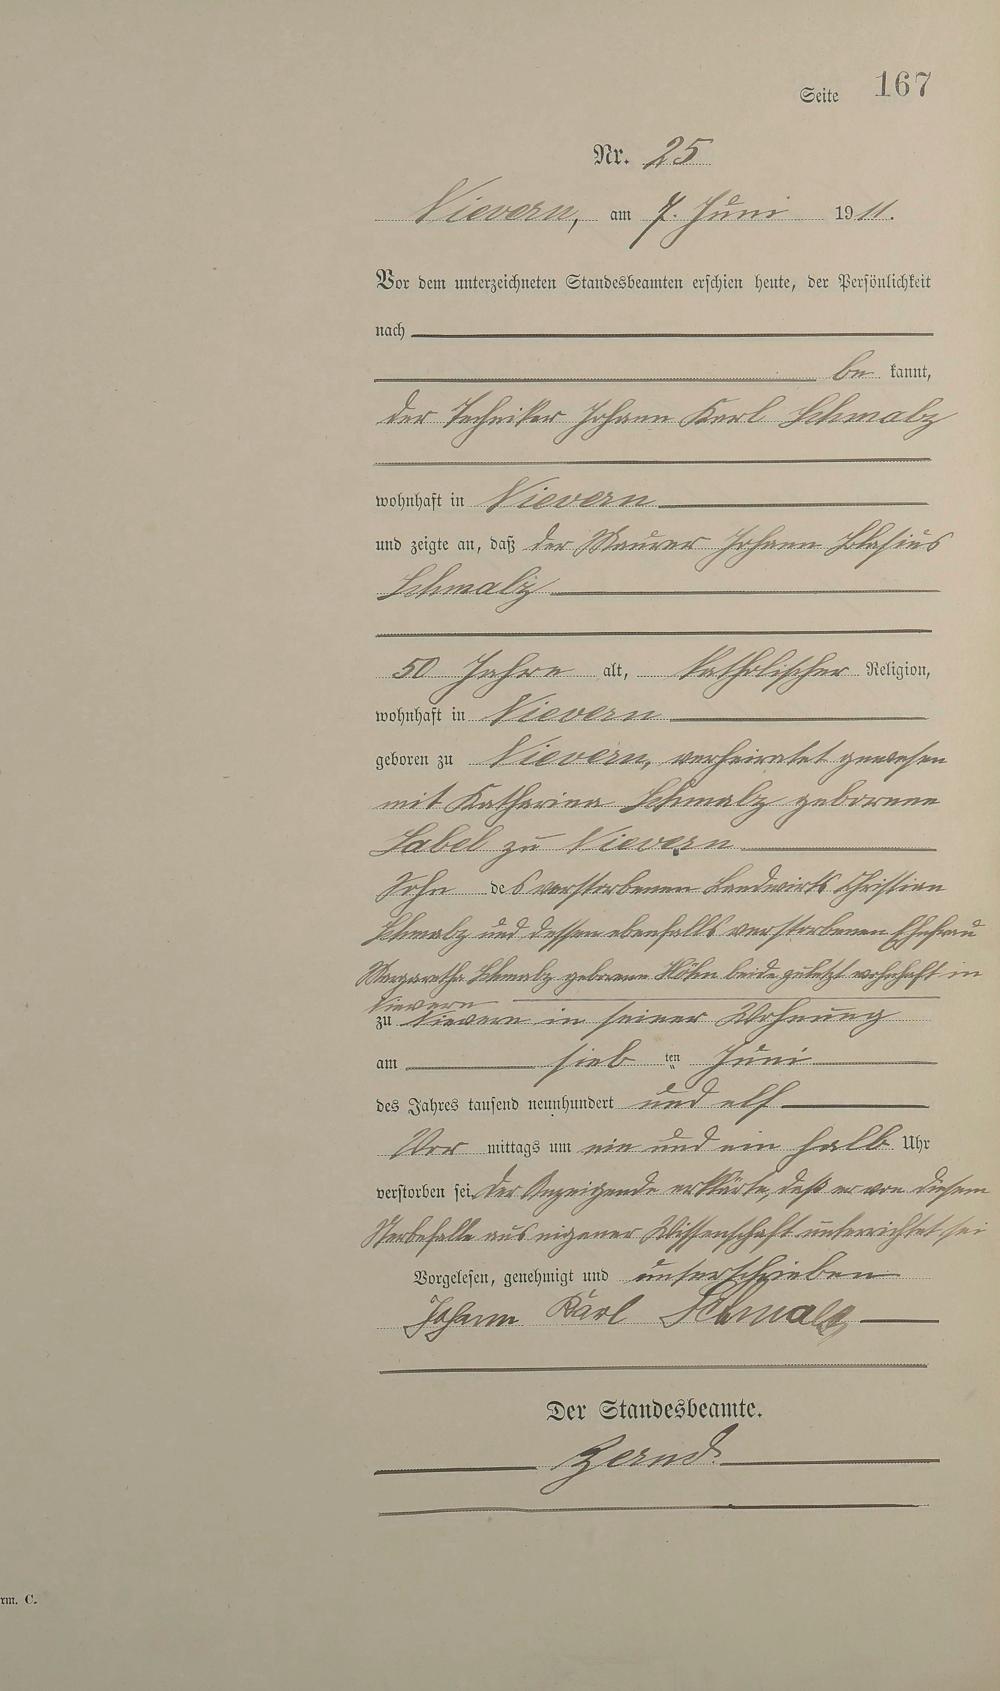 Seite 167
Nr. 25
Nievern, am 7. Juni 1911.
Vor dem unterzeichneten Standesbeamten erschien heute, der Persönlichkeit
nach
be kannt,
der Techniker Johann Karl Schmalz
wohnhaft in Nievern
und zeigte an, daß der Maurer Johann Blasius
Schmalz
50 Jahre alt, katholischer Religion,
wohnhaft in Nievern
geboren zu Nievern, verheiratet gewesen
mit Katharina Schmalz geborenne
Label zu Nievern
Sohn des verstorbenen Landwirts Christian
Schmalz und dessen ebenfalls verstorbenen Ehefrau
Margaretha Schmalz geborene Höhn beide zuletzt wohnhaft in
Nievern
zu Nievern in seiner Wohnung
am sieb ten Juni
des Jahres tausend neunhundert und elf
Vor mittags um ein und ein halb Uhr
verstorben sei. Der Anzeigende erklärte, daß er von diesem
Sterbefalle aus eigener Wissenschaft unterrichtet sei
Vorgelesen, genehmigt und unterschrieben
Johann Karl Schmalz
Der Standesbeamte.
rm. C.